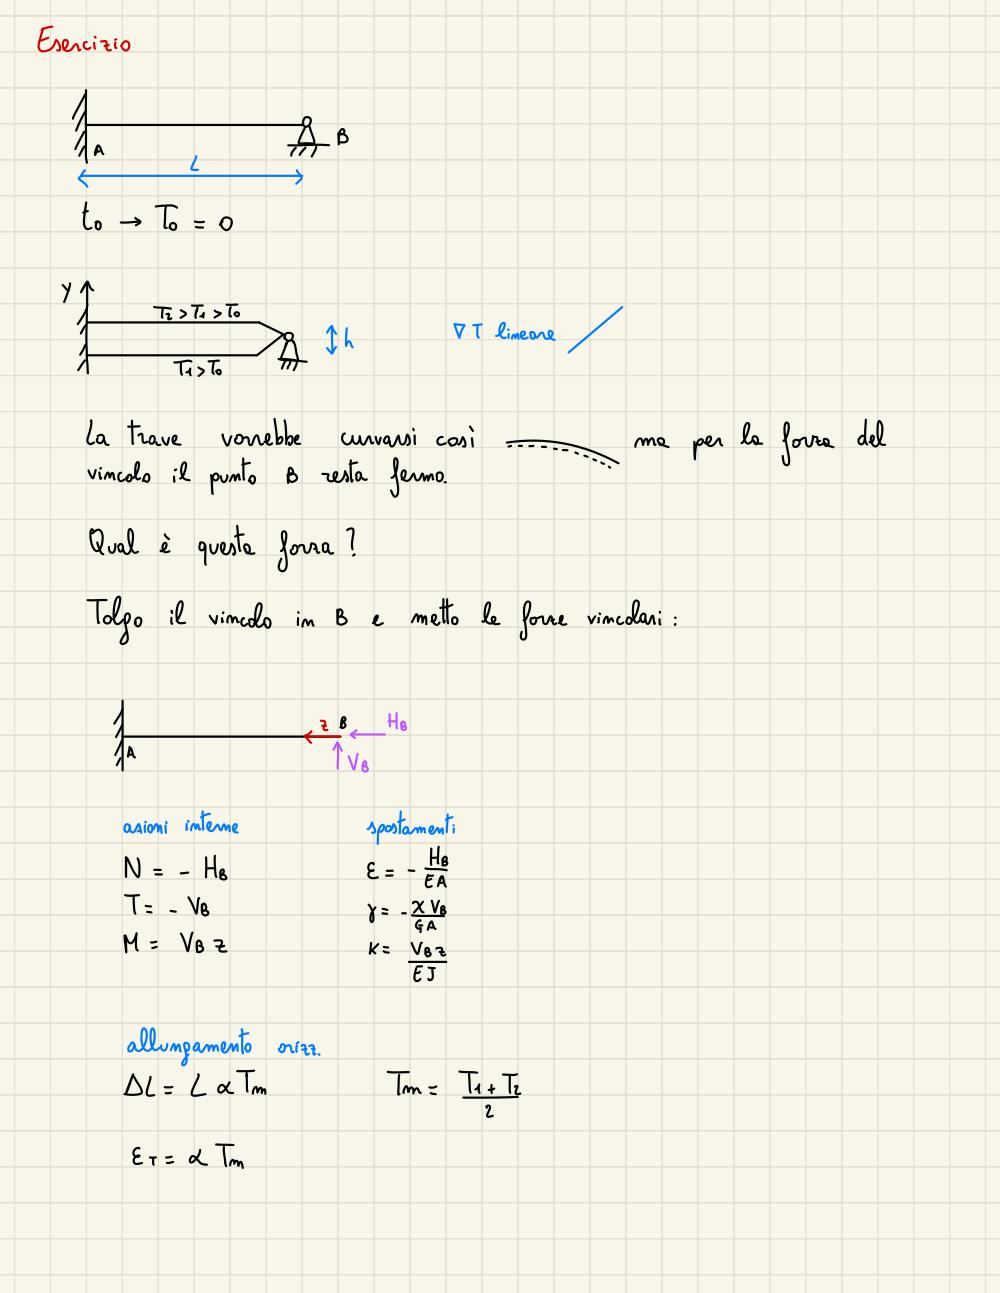 Esercizio
A
B
L
t₀ → T₀ = 0
y
T₂ > T₁ > T₀
T₁ > T₀
h
∇ T lineare
La trave vorrebbe curvarsi così ma per la forza del
vincolo il punto B resta fermo.
Qual è questa forza?
Tolgo il vincolo in B e metto le forze vincolari:
A
z B
H_B
V_B
azioni interne
spostamenti
N = - H_B
ε = - H_B / EA
T = - V_B
γ = - χ V_B / GA
M = V_B z
κ = V_B z / EJ
allungamento orizz.
ΔL = L α Tm
Tm = T₁ + T₂ / 2
ε_T = α Tm